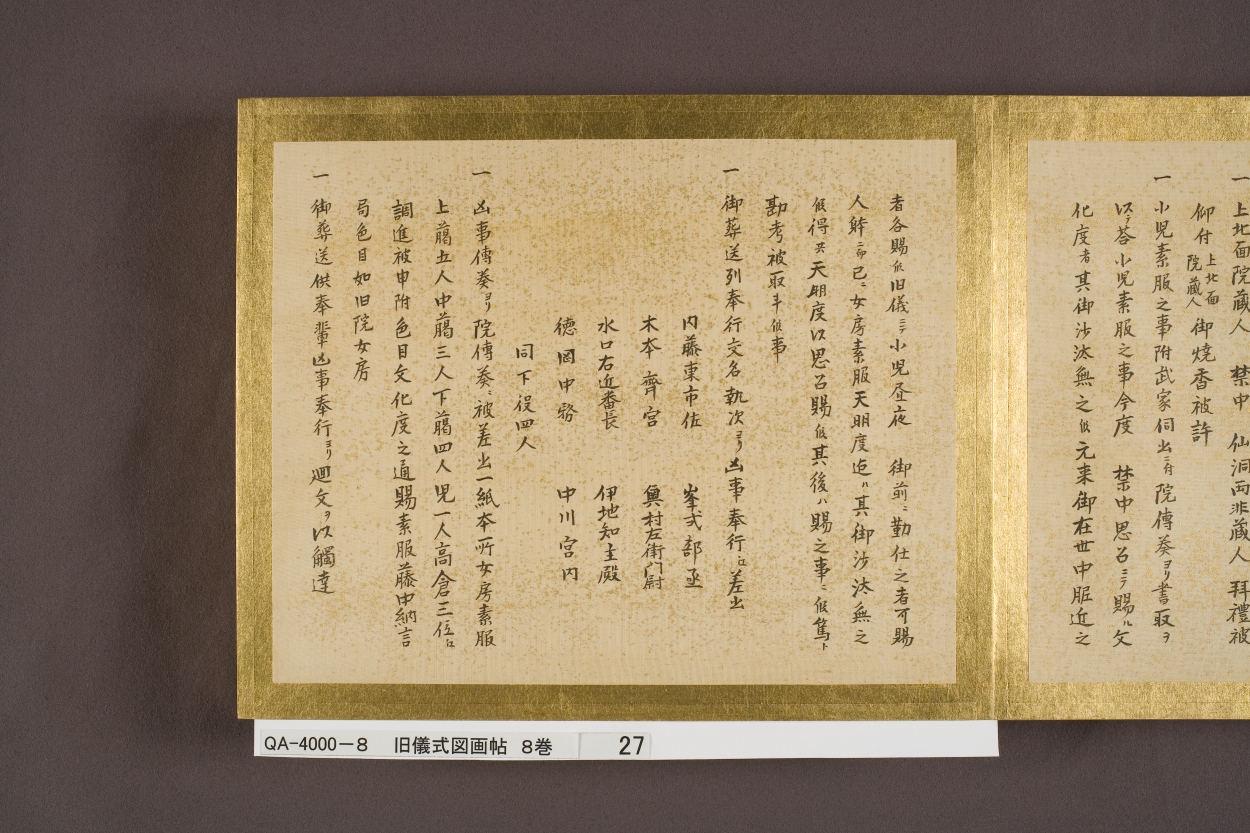 一 上北面院蔵人 禁中 仙洞両非蔵人 拝禮被
仰付 上北面院蔵人 御焼香被許
一 小児素服之事附武家伺出ニ付院傳奏ヨリ書取ヲ
以テ答小児素服之事今度 禁中思召ニテ賜ル欠
化度者其御沙汰無之 元来御在世中服近之
者各賜 旧儀ニテ小児昼夜 御前ニ勤仕之者可賜
人 己ニ女房素服天明度迄ハ其御沙汰無之
得共天明度以思召賜 其後ハ賜之事ニ 篤ト
勘考被取斗 事
一 御葬送列奉行交名執次ヨリ凶事奉行江差出
内藤東市佐 峯式部丞
木本齊宮 奥村左衛門尉
水口右近番長 伊地知主殿
徳岡中務 中川宮内
同下役四人
一 凶事傳奏ヨリ院傳奏ニ被差出一紙本所女房素服
上臈五人中臈三人下臈四人児一人高倉三位江
調進被申附色目文化度之通賜素服藤中納言
局色目如旧院女房
一 御葬送供奉輩凶事奉行ヨリ廻文ヲ以觸達
QA-4000-8 旧儀式図画帖 8巻 27